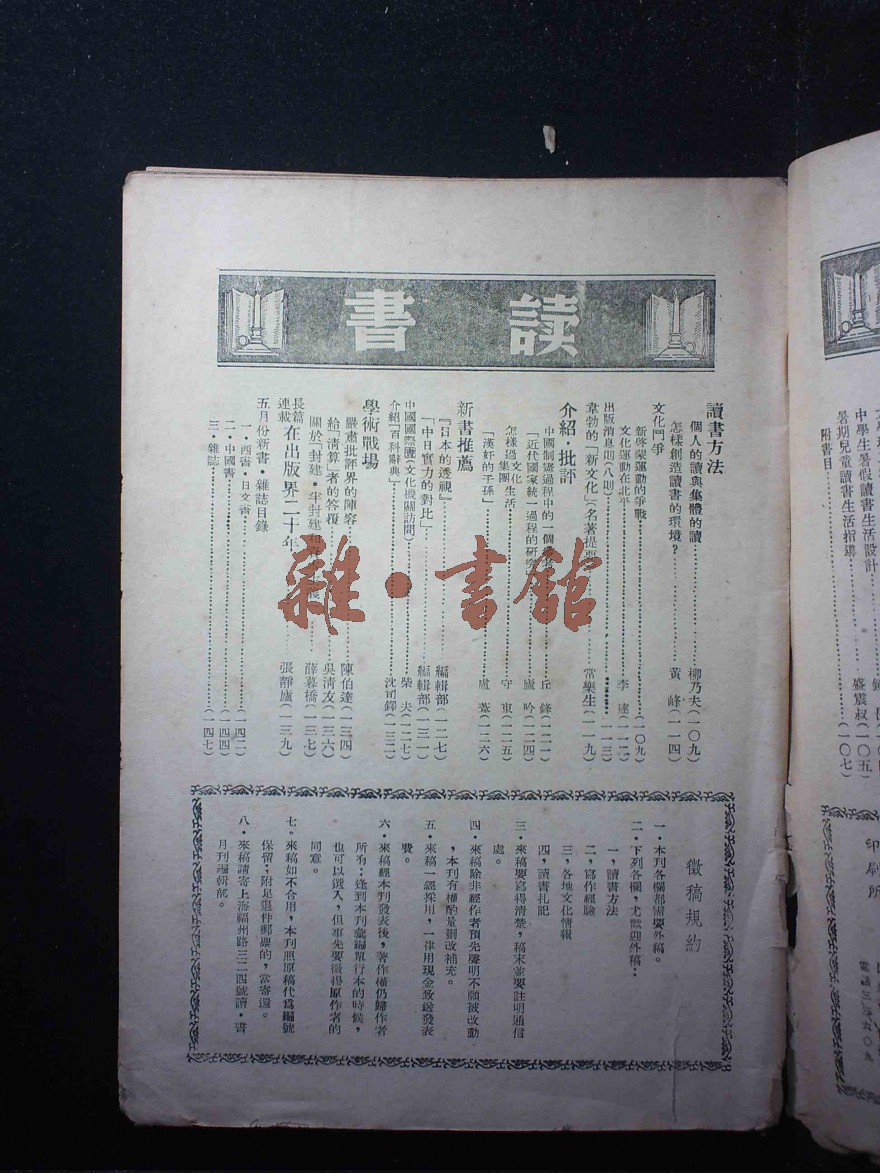 讀書
讀書方法
個人的讀與集體的讀……柳乃夫(一〇九)
怎樣創造讀書的環境?……黃 峰(一一四)
文化鬥爭
新啓蒙運動的爭戰……(一〇九)
文化運動在北平……李 達(一一二)
出版消息則(八則)……(一一三)
韋勃的「新文化」(名著提要)……常樂生(一一九)
介紹・批評
中國制憲過程中的一個……丘 鋒(一二一)
「近代國家統一過程的研究」……盧 吟(一二四)
怎樣過文化生活……守 東(一二五)
集團
「漢奸的子孫」……盧 葦(一二六)
新書推薦
『日本的透視』……編輯部(一二七)
「中日實力的對比」……編輯部(一三一)
中國國際圖(文化機關訪問)……柴 夫(一二七)
介紹「百科辭典」……沈司鐸(一三二)
學術戰場
嚴肅批評界的陣容……陳伯達(一三四)
給「清算」者的答覆……吳清友(一三六)
關於「封建・半封建和……薛暮橋(一三七)
長篇連載 在出版界二十年……張靜廬(一三九)
五月份新書・雜誌目錄
一・西書・日文書……(一四二)
二・中國書……(一四四)
三・雜誌……(一四七)
徵稿規約
一・本刊各欄都需要外稿。
二・下列各欄,尤歡迎外稿:
1,讀書方法
二,寫作經驗
三,各地文化情報
四,讀書扎記
三・來稿要寫得清楚,稿末並要註明通信
處。
四・來稿除非經作者預先聲明不願被改動
,本刊有權酌量刪改補充。
五・來稿一經採用,一律用現金致送發表
費。
六・來稿經本刊發表後,著作權仍歸作者
所有;逢到本刊彙編單行本的時候,
也可以選入,但事先要徵得原作者的
同意。
七・來稿如不合用,本刊照原稿代為編號
保留;附足退件郵票的,當寄還。
八・來稿請寄上海福州路三二四號讀・書
月刊編輯部。
中學生暑假讀書生活設計
暑期兒童讀書生活指導……盛震叔(一〇五)
附書目……(一〇七)
印刷所
雜・書館